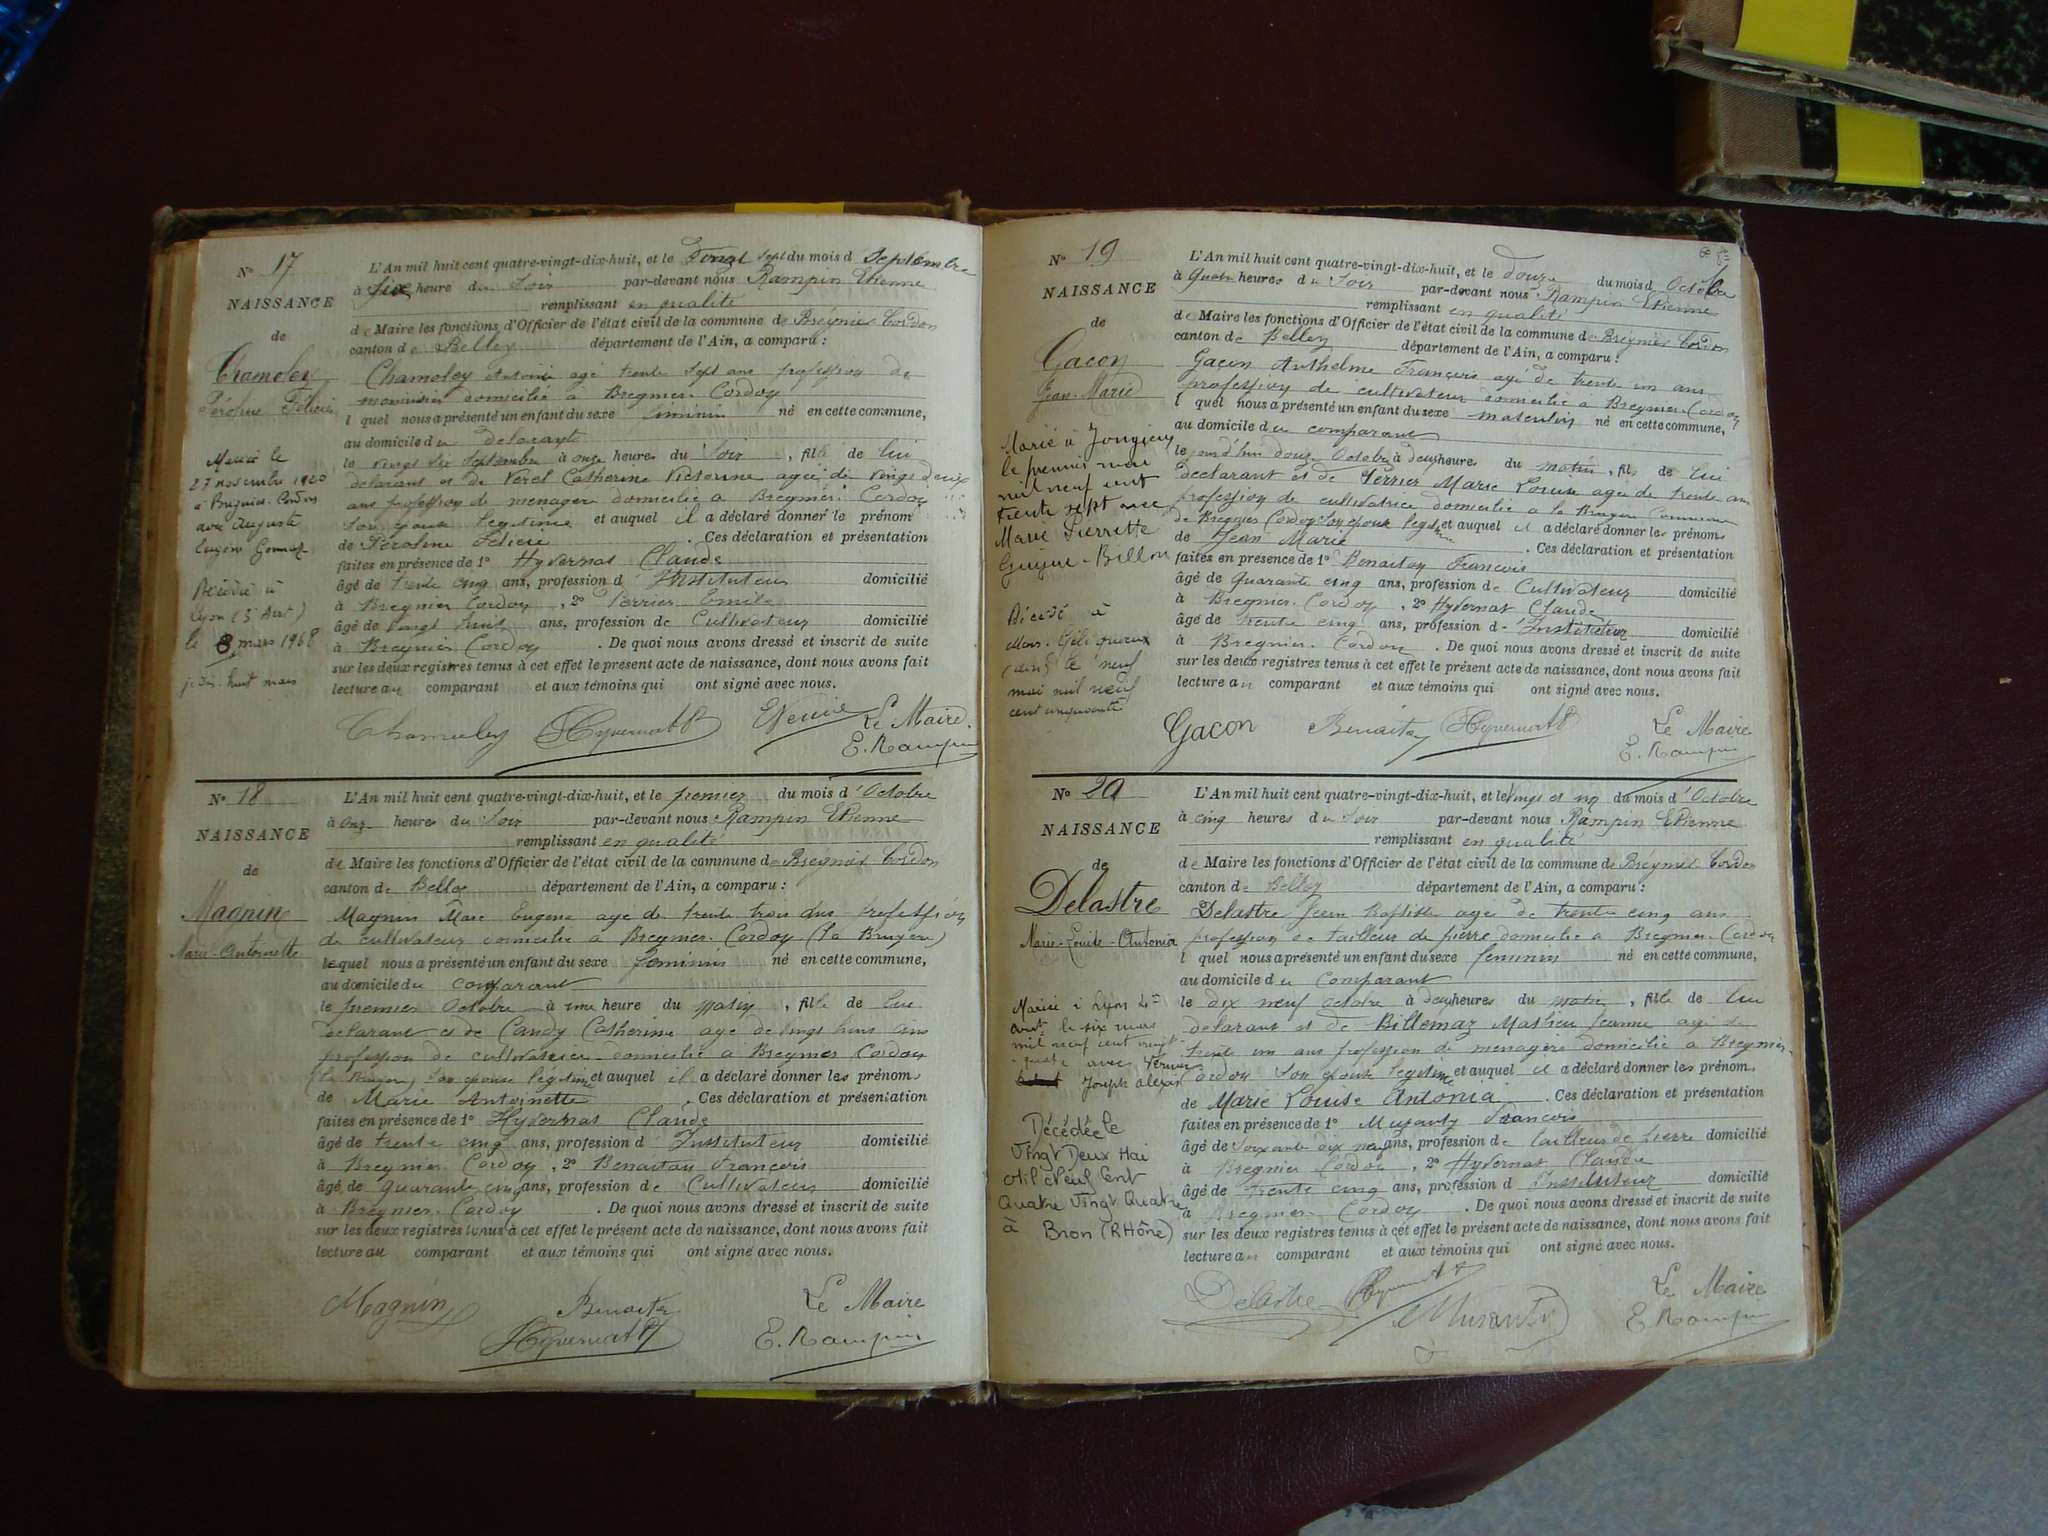 N° 17
NAISSANCE
de
Chameley
Péroline Félicie
Mariée le
27 novembre 1920
à Brégnier-Cordon
avec Auguste
Eugène
Décédée à
Lyon (5 Arrt)
le 8 mars 1968
huit mars
L'An mil huit cent quatre-vingt-dix-huit, et le Vingt sept du mois d Septembre
à six heure du Soir par-devant nous Rampin Etienne
remplissant en qualité
de Maire les fonctions d'Officier de l'état civil de la commune de Brégnier Cordon
canton de Belley département de l'Ain, a comparu :
Chameley Antoine agé trente sept ans profession de
domicilié à Bregnier Cordon
l quel nous a présenté un enfant du sexe feminin né en cette commune,
au domicile du declarant
le vingt six Septembre à onze heures du Soir, fille de lui
declarant et de Perel Catherine Victorine agée de vingt deux
ans profession de menagere domiciliée à Bregnier Cordon
son épouse légitime et auquel il a déclaré donner le prénom
de Péroline Félicie. Ces déclaration et présentation
faites en présence de 1° Hyvernat Claude
âgé de trente cinq ans, profession d'Instituteur domicilié
à Bregnier Cordon, 2° Perrier Emile
âgé de vingt huit ans, profession de Cultivateur domicilié
à Bregnier Cordon. De quoi nous avons dressé et inscrit de suite
sur les deux registres tenus à cet effet le présent acte de naissance, dont nous avons fait
lecture au comparant et aux témoins qui ont signé avec nous.
Chameley Hyvernat Le Maire
E. Rampin
N° 18
NAISSANCE
de
Magnin
Marie-Antoinette
L'An mil huit cent quatre-vingt-dix-huit, et le premier du mois d'Octobre
à onze heures du Soir par-devant nous Rampin Etienne
remplissant en qualité
de Maire les fonctions d'Officier de l'état civil de la commune de Brégnier Cordon
canton de Belley département de l'Ain, a comparu :
Magnin Marc Eugene agé de trente trois ans profession
de cultivateur domicilié à Bregnier-Cordon (la Bruyere)
lequel nous a présenté un enfant du sexe feminin né en cette commune,
au domicile du comparant
le premier Octobre à une heure du matin, fille de lui
declarant et de Candy Catherine agé de vingt huit ans
profession de cultivatrice domicilié à Bregnier Cordon
(la Bruyere) son épouse légitime et auquel il a déclaré donner les prénoms
de Marie Antoinette. Ces déclaration et présentation
faites en présence de 1° Hyvernat Claude
âgé de trente cinq ans, profession d'Instituteur domicilié
à Bregnier Cordon, 2° Benaiton François
âgé de quarante cinq ans, profession de Cultivateur domicilié
à Bregnier-Cordon. De quoi nous avons dressé et inscrit de suite
sur les deux registres tenus à cet effet le présent acte de naissance, dont nous avons fait
lecture au comparant et aux témoins qui ont signé avec nous.
Magnin Benaiton Le Maire
Hyvernat E. Rampin
N° 19
NAISSANCE
de
Gacon
Jean-Marie
Marié à Jongieux
le premier mai
mil neuf cent
trente sept avec
Marie Pierrette
Guigue-Billon
Décédé à
(Ain) le neuf
mai mil neuf
cent cinquante
L'An mil huit cent quatre-vingt-dix-huit, et le douze du mois d Octobre
à quatre heures du Soir par-devant nous Rampin Etienne
remplissant en qualité
de Maire les fonctions d'Officier de l'état civil de la commune de Brégnier Cordon
canton de Belley département de l'Ain, a comparu :
Gacon Anthelme François agé de trente un ans
profession de cultivateur domicilié à Bregnier Cordon
l quel nous a présenté un enfant du sexe masculin né en cette commune,
au domicile du comparant
le jourd'hui douze Octobre à deux heures du matin, fils de lui
declarant et de Perrier Marie Louise agée de trente ans
profession de cultivatrice domicilié à la Bruyere Commune
de Bregnier Cordon son épouse légitime et auquel il a déclaré donner les prénoms
de Jean Marie. Ces déclaration et présentation
faites en présence de 1° Benaiton François
âgé de Quarante cinq ans, profession de Cultivateur domicilié
à Bregnier-Cordon, 2° Hyvernat Claude
âgé de trente cinq ans, profession d'Instituteur domicilié
à Bregnier-Cordon. De quoi nous avons dressé et inscrit de suite
sur les deux registres tenus à cet effet le présent acte de naissance, dont nous avons fait
lecture au comparant et aux témoins qui ont signé avec nous.
Gacon Benaiton Hyvernat Le Maire
E. Rampin
N° 20
NAISSANCE
de
Delastre
Marie-Louise-Antonia
Mariée à Lyon 4e
arrt le six mars
mil neuf cent vingt-
quatre avec
Joseph
Décédée le
Vingt Deux Mai
Mil Neuf Cent
Quatre Vingt Quatre
à Bron (RHône)
L'An mil huit cent quatre-vingt-dix-huit, et le vingt et un du mois d'Octobre
à cinq heures du Soir par-devant nous Rampin Etienne
remplissant en qualité
de Maire les fonctions d'Officier de l'état civil de la commune de Bregnier Cordon
canton de Belley département de l'Ain, a comparu :
Delastre Jean Baptiste agé de trente cinq ans
profession de tailleur de pierre domicilié à Bregnier-Cordon
l quel nous a présenté un enfant du sexe feminin né en cette commune,
au domicile du Comparant
le dix neuf octobre à deux heures du matin, fille de lui
declarant et de Billemaz Mathieu Jeanne agé de
trente un ans profession de menagère domicilié à Bregnier-
Cordon son épouse légitime et auquel il a déclaré donner les prénoms
de Marie Louise Antonia. Ces déclaration et présentation
faites en présence de 1° Musanty François
âgé de soixante dix neuf ans, profession de tailleur de pierre domicilié
à Bregnier Cordon, 2° Hyvernat Claude
âgé de trente cinq ans, profession d Instituteur domicilié
à Bregnier Cordon. De quoi nous avons dressé et inscrit de suite
sur les deux registres tenus à cet effet le présent acte de naissance, dont nous avons fait
lecture au comparant et aux témoins qui ont signé avec nous.
Delastre Hyvernat Le Maire
Musanty E. Rampin